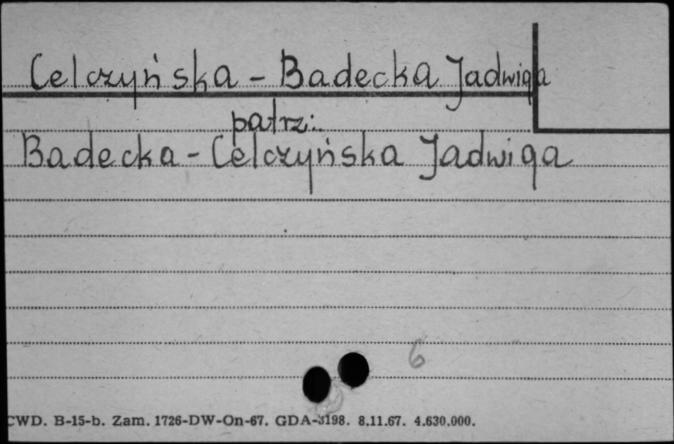 Celczyńska - Badecka Jadwiga
patrz:
Badecka - Celczyńska Jadwiga
6
CWD. B-15-b. Zam. 1726-DW-On-67. GDA-3198. 8.11.67. 4.630.000.